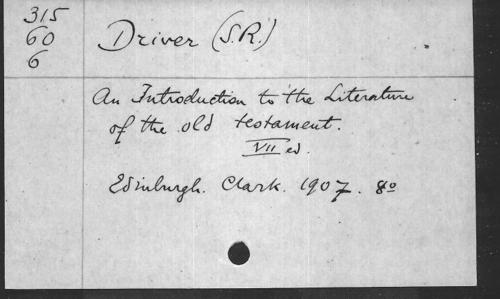 315
60
6
Driver (S.R.)
An Introduction to the Literature
of the old testament.
VII ed.
Edinburgh. Clark. 1907. 8º